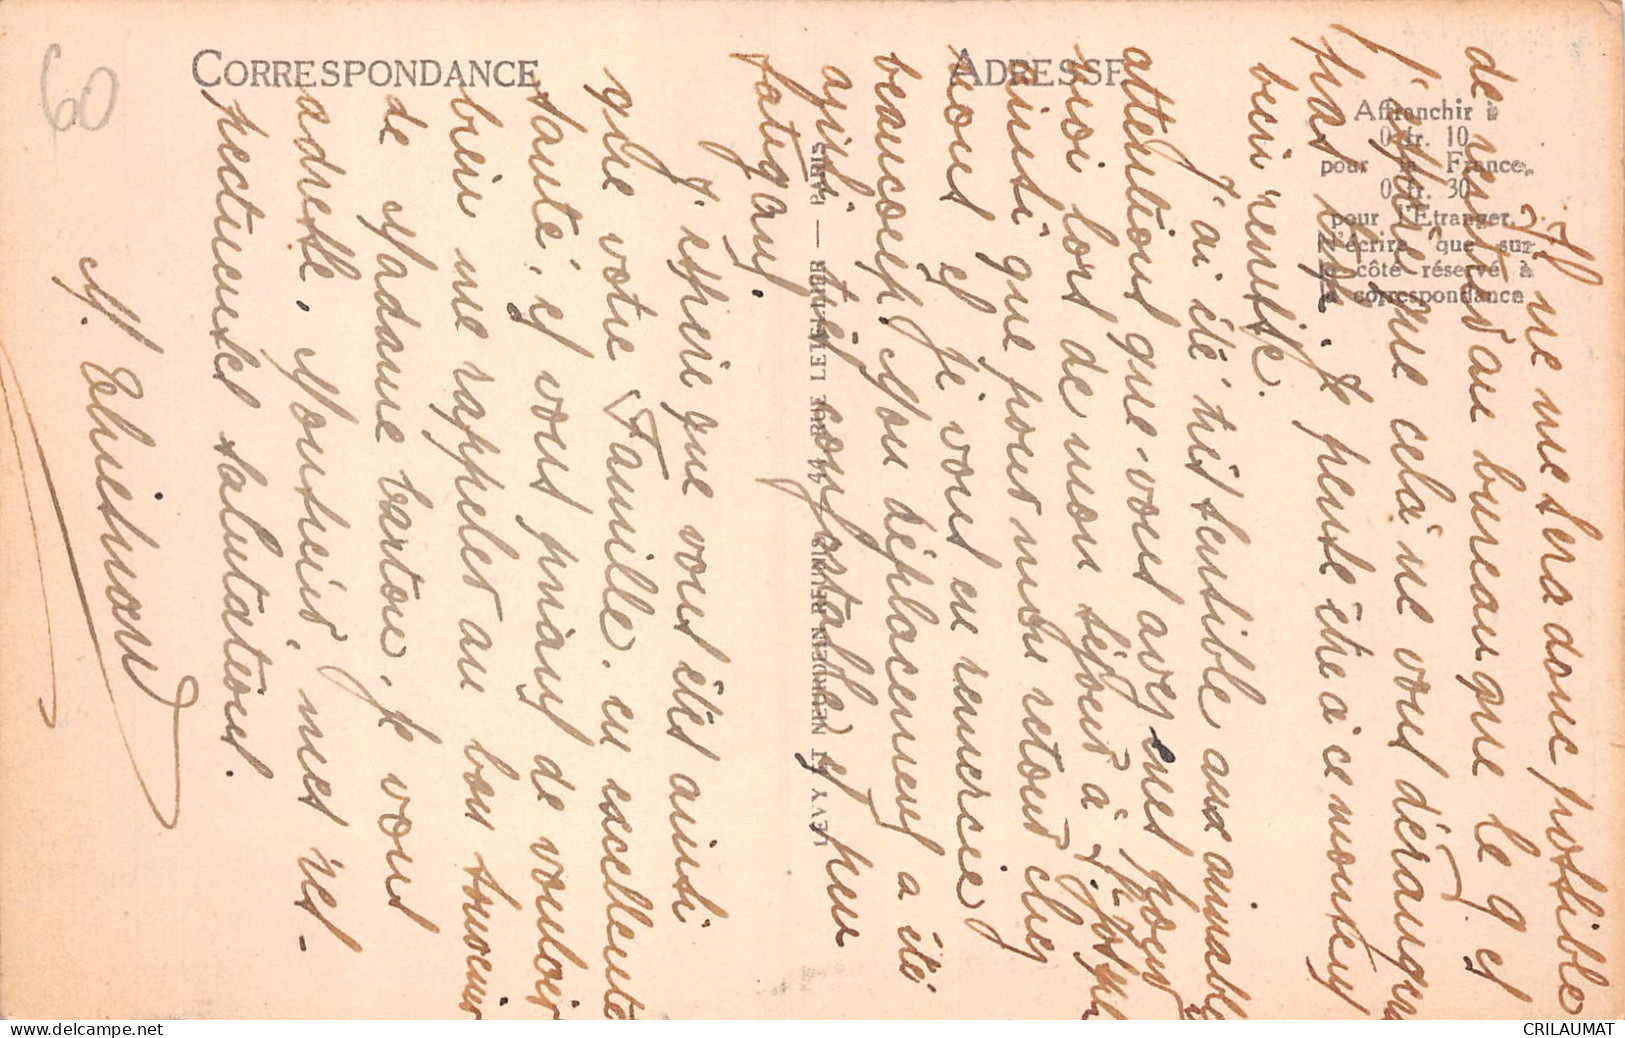 60
CORRESPONDANCE
ADRESSE
Affranchir à
0 fr. 10
pour la France,
0 fr. 30
pour l'Etranger,
N'écrire que sur
le côté réservé à
la correspondance
LEVY ET NEURDEIN RÉUNIS, 44, RUE LETELLIER — PARIS
Il ne me sera donc possible
de rester au bureau que le 9 et
j'espère que cela ne vous dérangera
pas trop. Je pense être à ce moment
bien remise.
J'ai été très sensible aux aimables
attentions que vous avez eues pour
moi lors de mon séjour à St Joseph
ainsi que pour mon retour chez
nous et je vous en remercie
beaucoup. Mon déplacement a été
ainsi très confortable et peu
fatigant.
J'espère que vous êtes ainsi
que votre Famille, en excellente
santé, et vous priant de vouloir
bien me rappeler au bon souvenir
de Madame Barton, je vous
adresse, Monsieur, mes res-
pectueuses salutations.
M.
CRILAUMAT.COM